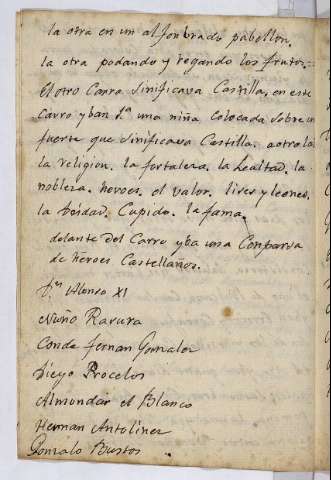 la otra en un alfonbrado pabellon.
la otra podando y regando los frutos.
El otro Carra sinificava Castilla, en este
Carro yban 1ª una niña colocada sobre un
fuerte que sinificava Castilla. a otro la
la religion. la fortaleza. la Lealtad. la
nobleza. heroes. el valor. lises y leones.
la Cupido. la fama.
delante del Carro yba una Conparsa
de heroes Castellanos.
Dn Alonso XI
Nuño Rasura
Conde fernan Gonzalez
Diego Procelos
Almondar el Blanco
Hernan Antolinez
Gonzalo Bustos